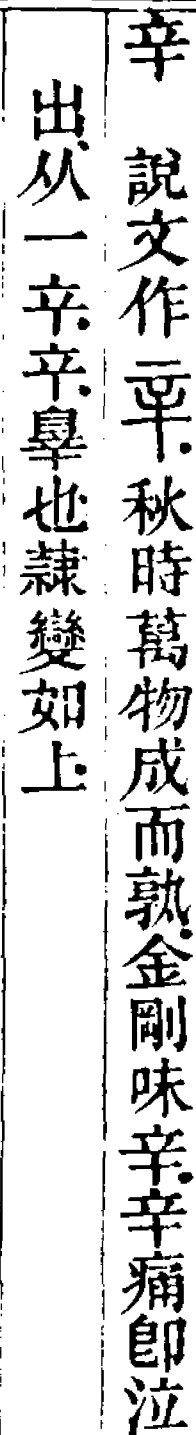 辛　說文作𨐌.秋時萬物成而孰.金剛味辛.辛痛卽泣
出.从一䇂.䇂.辠也隸變如上.